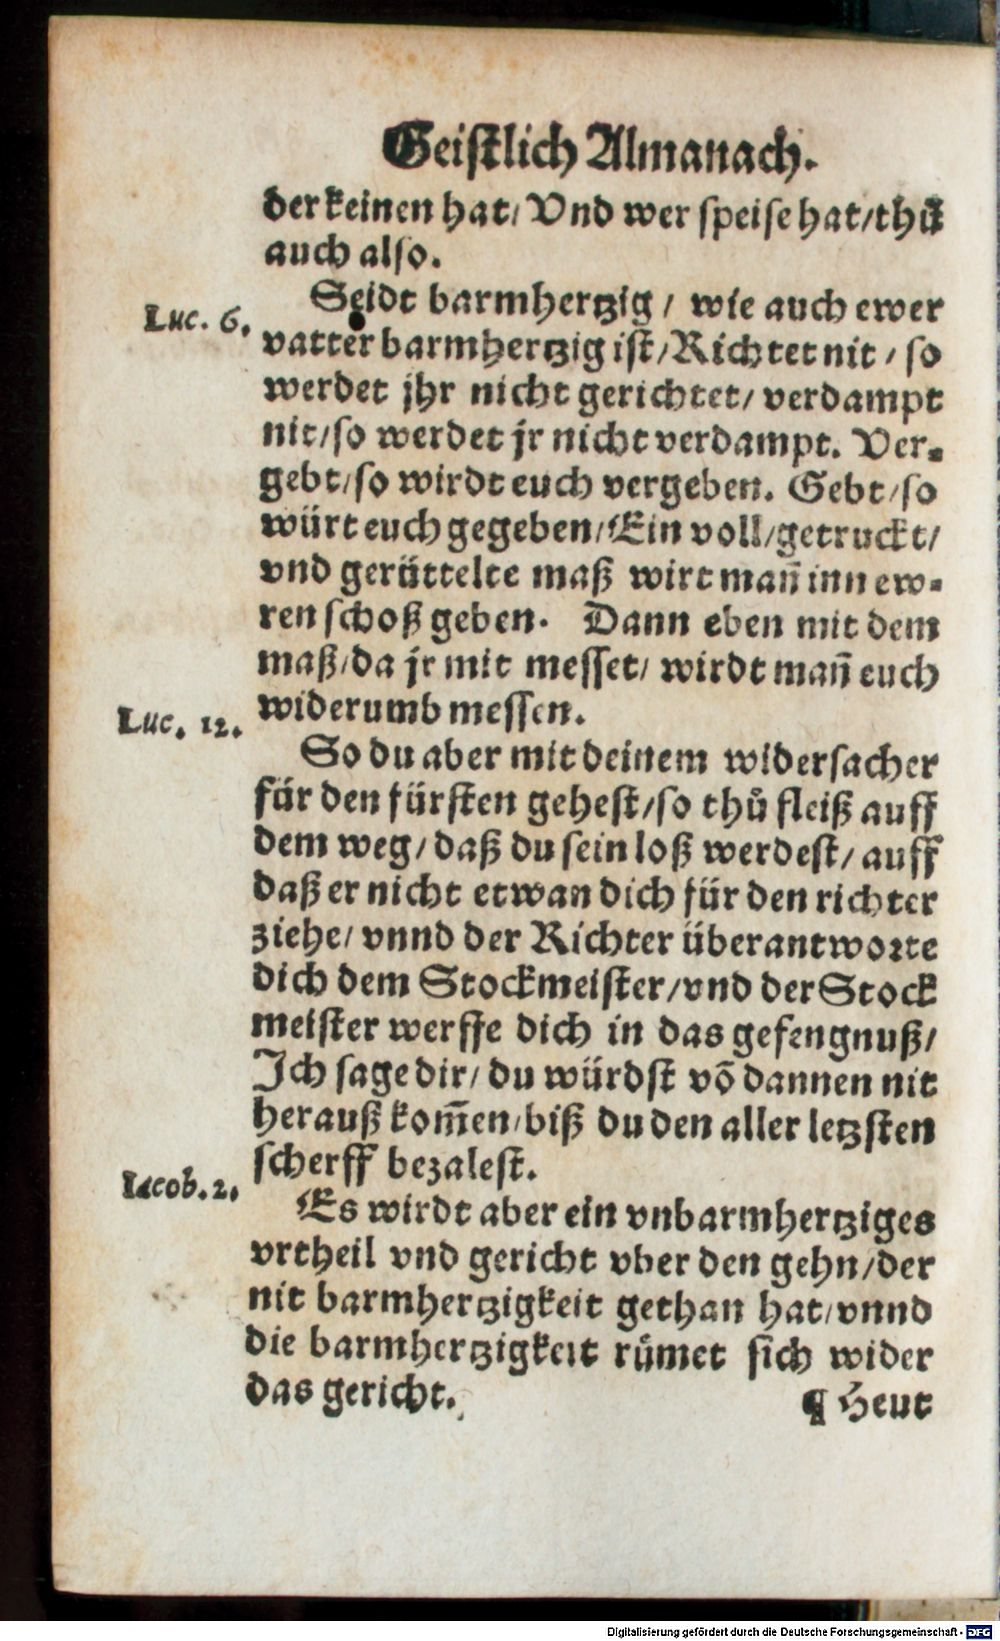 Geistlich Almanach.
der keinen hat/ Vnd wer speise hat/thů
auch also.
Luc. 6.
Seidt barmhertzig / wie auch ewer
vatter barmhertzig ist/Richtet nit / so
werdet jhr nicht gerichtet/ verdampt
nit/so werdet jr nicht verdampt. Ver-
gebt/so wirdt euch vergeben. Gebt/so
würt euch gegeben/Ein voll/getruckt/
vnd gerüttelte maß wirt mañ inn ew-
ren schoß geben. Dann eben mit dem
maß/da jr mit messet/ wirdt mañ euch
widerumb messen.
Luc. 12.
So du aber mit deinem widersacher
für den fürsten gehest/so thů fleiß auff
dem weg/ daß du sein loß werdest/ auff
daß er nicht etwan dich für den richter
ziehe/ vnnd der Richter überantworte
dich dem Stockmeister/vnd der Stock
meister werffe dich in das gefengnuß/
Ich sage dir/ du würdst võ dannen nit
herauß kom̃en/biß du den aller letzsten
scherff bezalest.
Iacob. 2.
Es wirdt aber ein vnbarmhertziges
vrtheil vnd gericht vber den gehn/der
nit barmhertzigkeit gethan hat/vnnd
die barmhertzigkeit růmet sich wider
das gericht.
¶ Heut
Digitalisierung gefördert durch die Deutsche Forschungsgemeinschaft - DFG